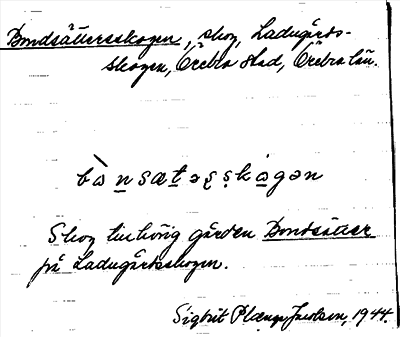 Bondsätersskogen, skog, Ladugårds-
skogen, Örebro stad, Örebro län.
bὼn̲sæt̲əʂʂkɷ̀gən
Skog tillhörig gården Bondsäter
på Ladugårdsskogen.
Sigbrit Plænge Jacobson, 1944.